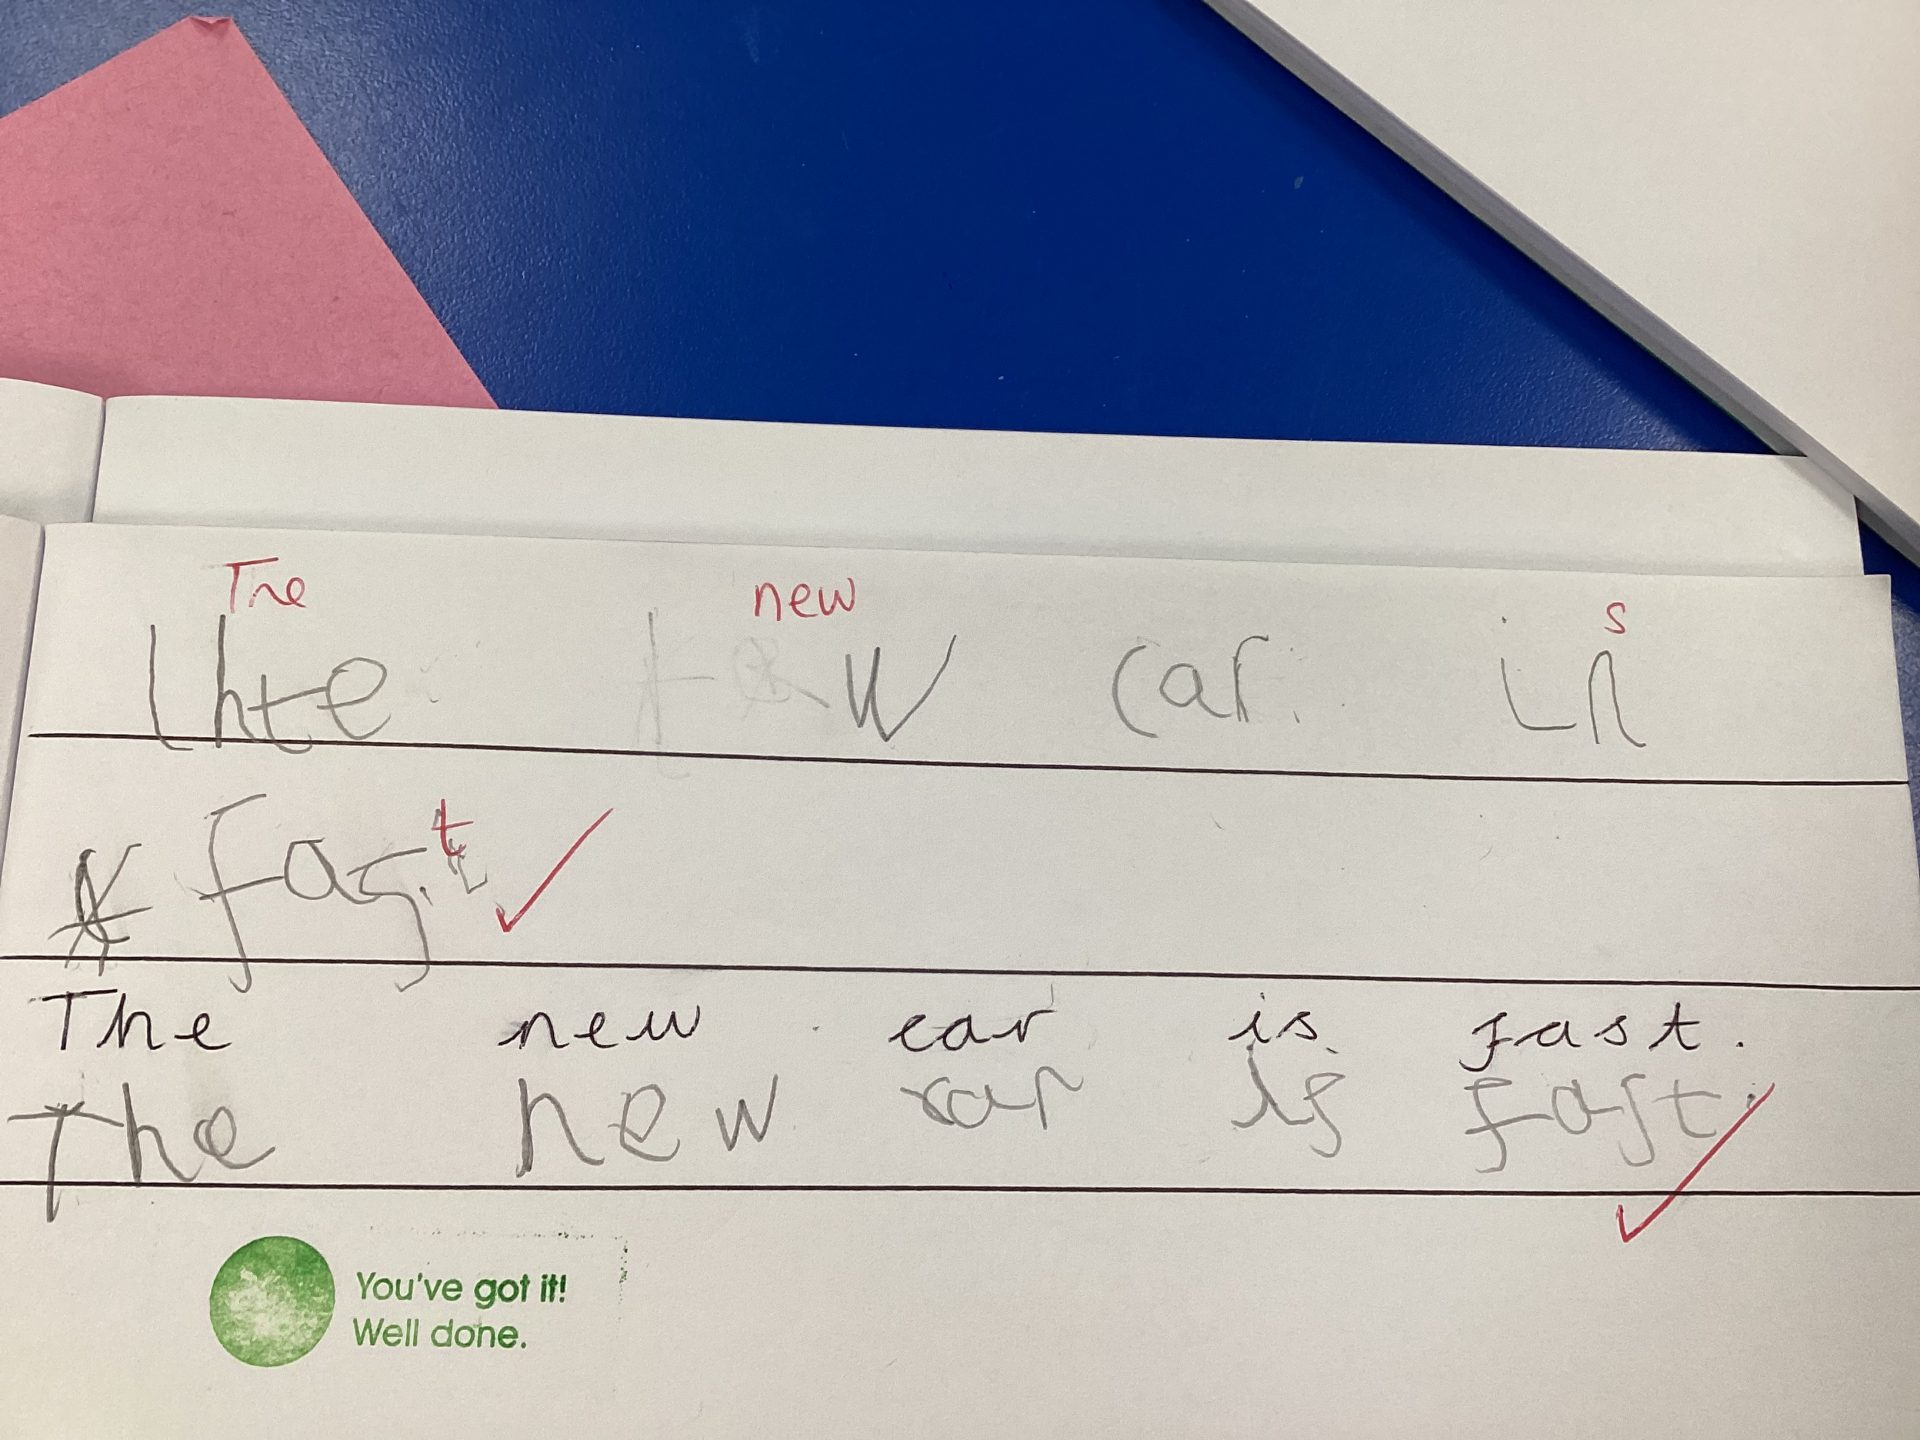 The new s
lhte w car. in
fas t
The new car is fast.
The new car is fast.
You've got it!
Well done.